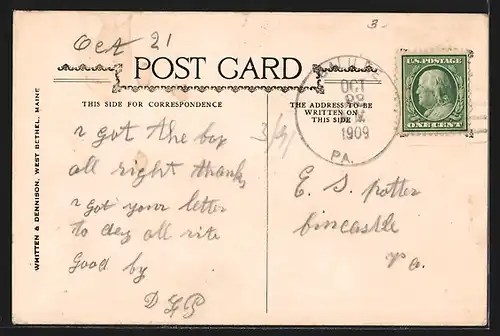 Oct 21
3-
POST CARD
THIS SIDE FOR CORRESPONDENCE
THE ADDRESS TO BE
WRITTEN ON
THIS SIDE
OCT
1909
PA.
U.S. POSTAGE
ONE CENT
WHITTEN & DENNISON, WEST BETHEL, MAINE
i got the box
all right thanks
i got your letter
to day all rite
good by
E. S. Potter
fincastle
va.